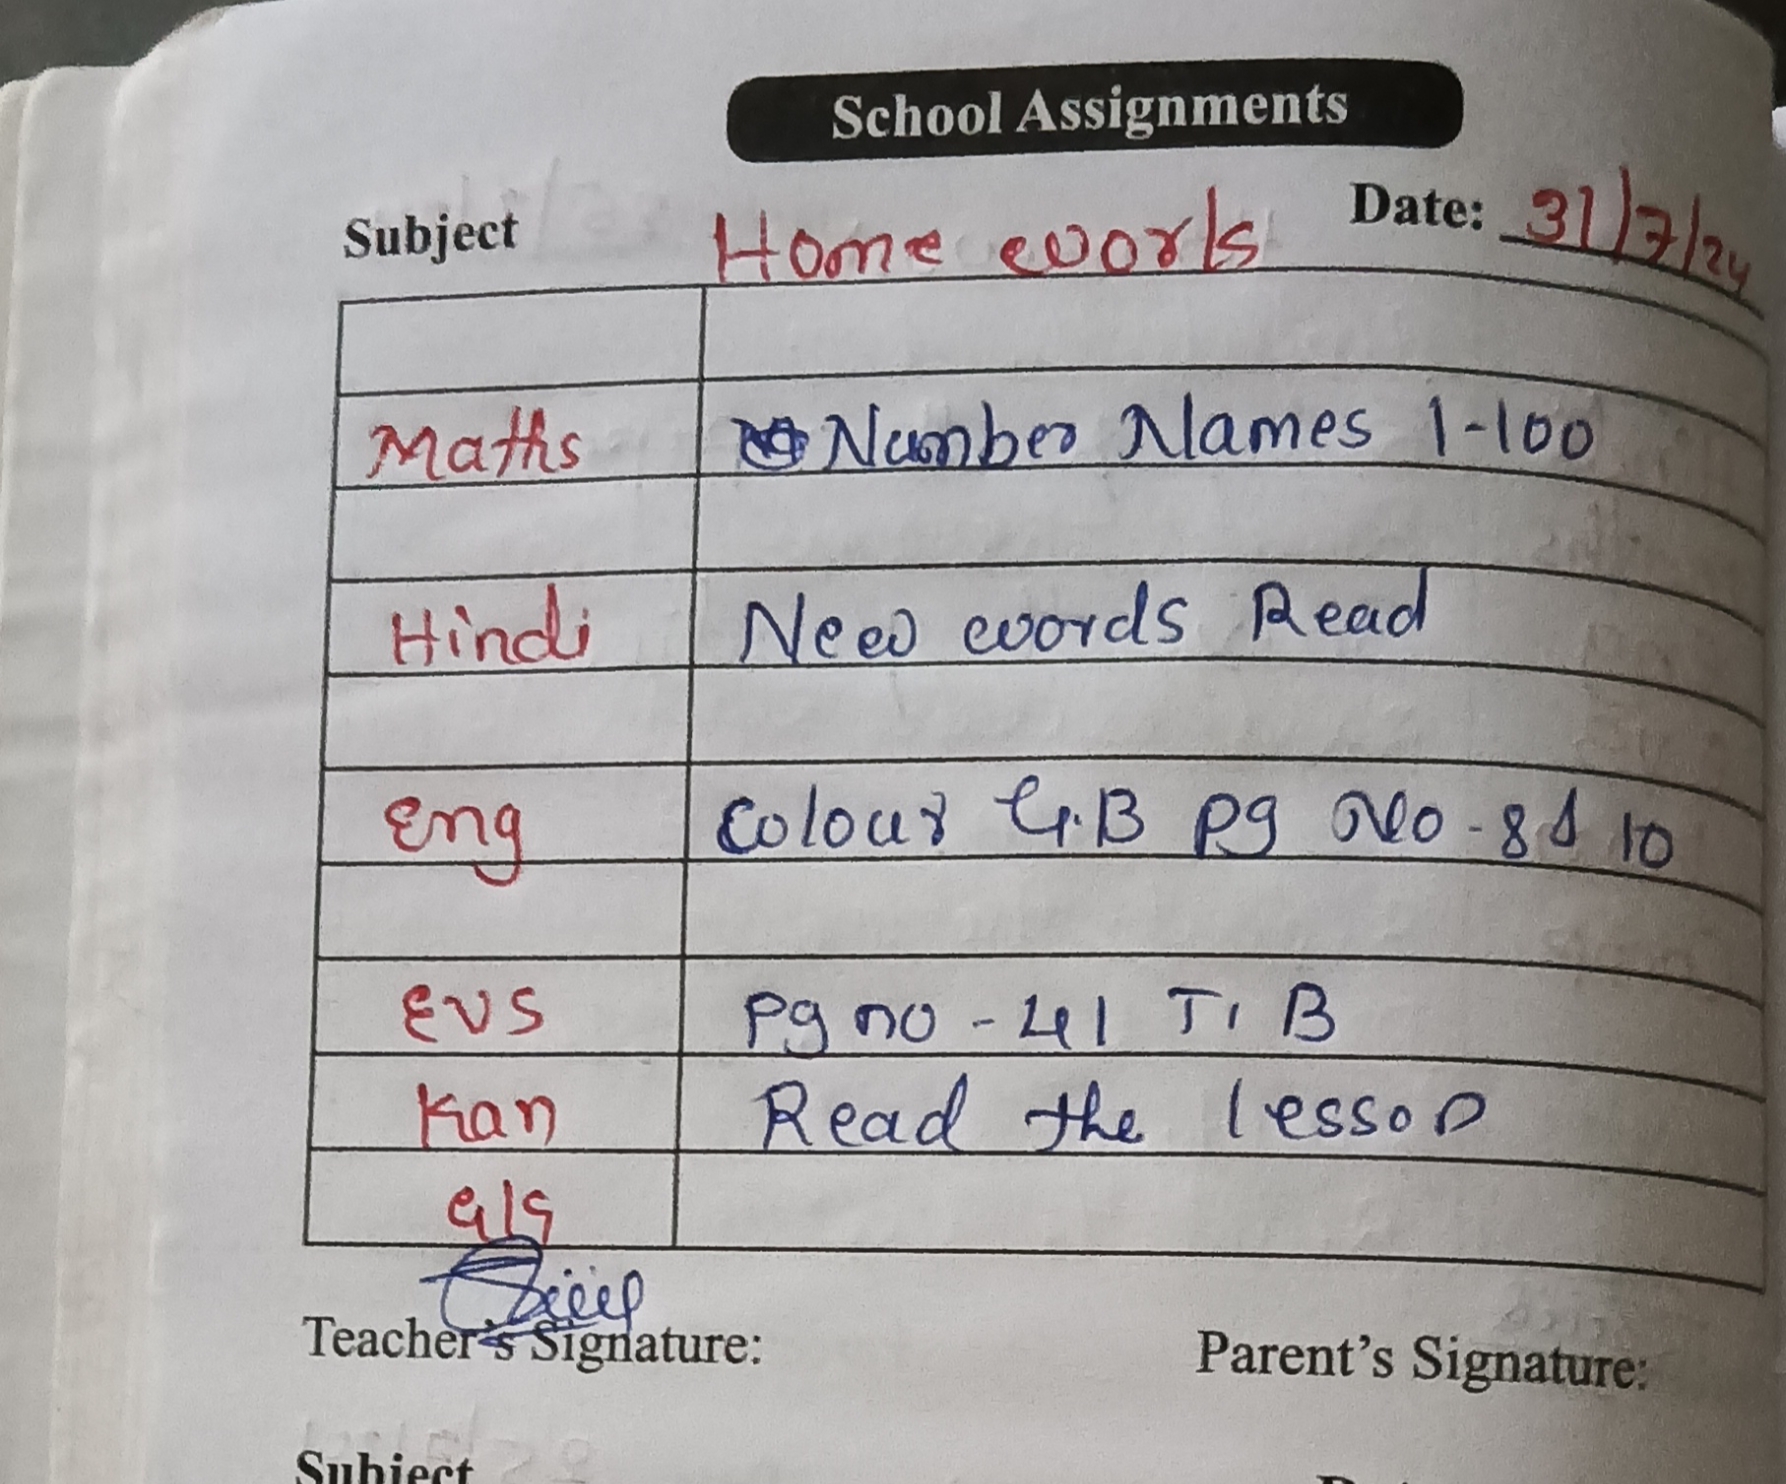 School Assignments
Subject Home work Date: 31/7/24
Maths Number Names 1-100
Hindi New words Read
Eng Colour G.B pg No - 8 & 10
EVS Pg no - 41 T. B
Kan Read the lesson
Teacher's Signature: Parent's Signature:
Subject